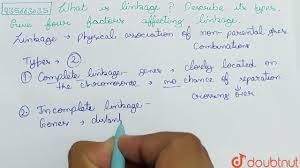 435663633
What is linkage? Describe its types.
Give four factors affecting linkage.
Linkage → physical association of non-parental genes
Combinations
Types → ②
① Complete linkage - genes → closely located on
the chromosome → no chance of separation
crossing over
② Incomplete linkage -
Genes → distan
doubtnut